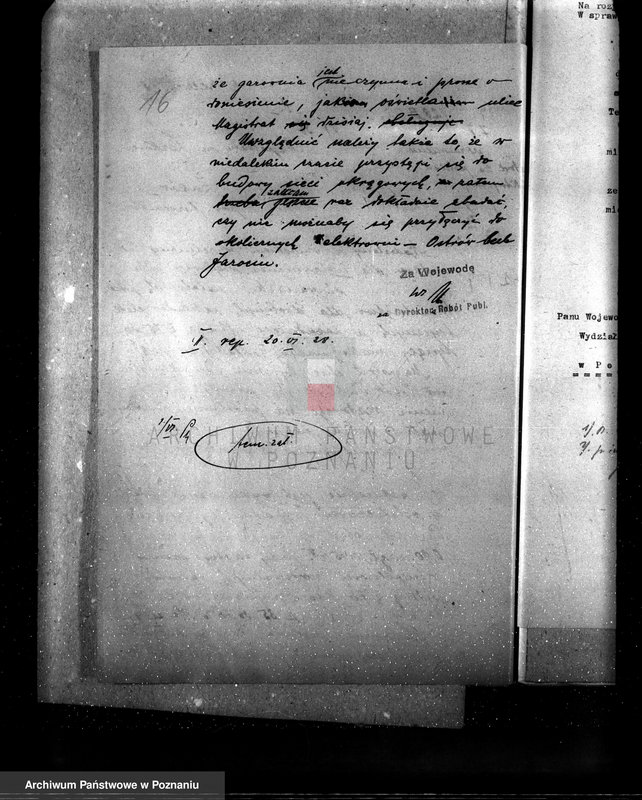 16
że gazownia jest nieczynna i proszę o
doniesienie, jakiem oświetla ulice
Magistrat się dzisiaj.
Uwzględnić należy także to, że w
niedalekim czasie przystąpi się do
budowy sieci okręgowych, zatem
trzeba zatem raz dokładnie zbadać,
czy nie możnaby się przyłączyć do
okolicznych elektrowni – Ostrów bądź
Jarocin.
Za Wojewodę
Dyrektor Robót Publ.
II. rep. 20.VI.28.
ARCHIWUM PAŃSTWOWE
W POZNANIU
Na roz
W spraw
Te
mi
ze
mi
Panu Wojewo
Wydział
w P o
Archiwum Państwowe w Poznaniu